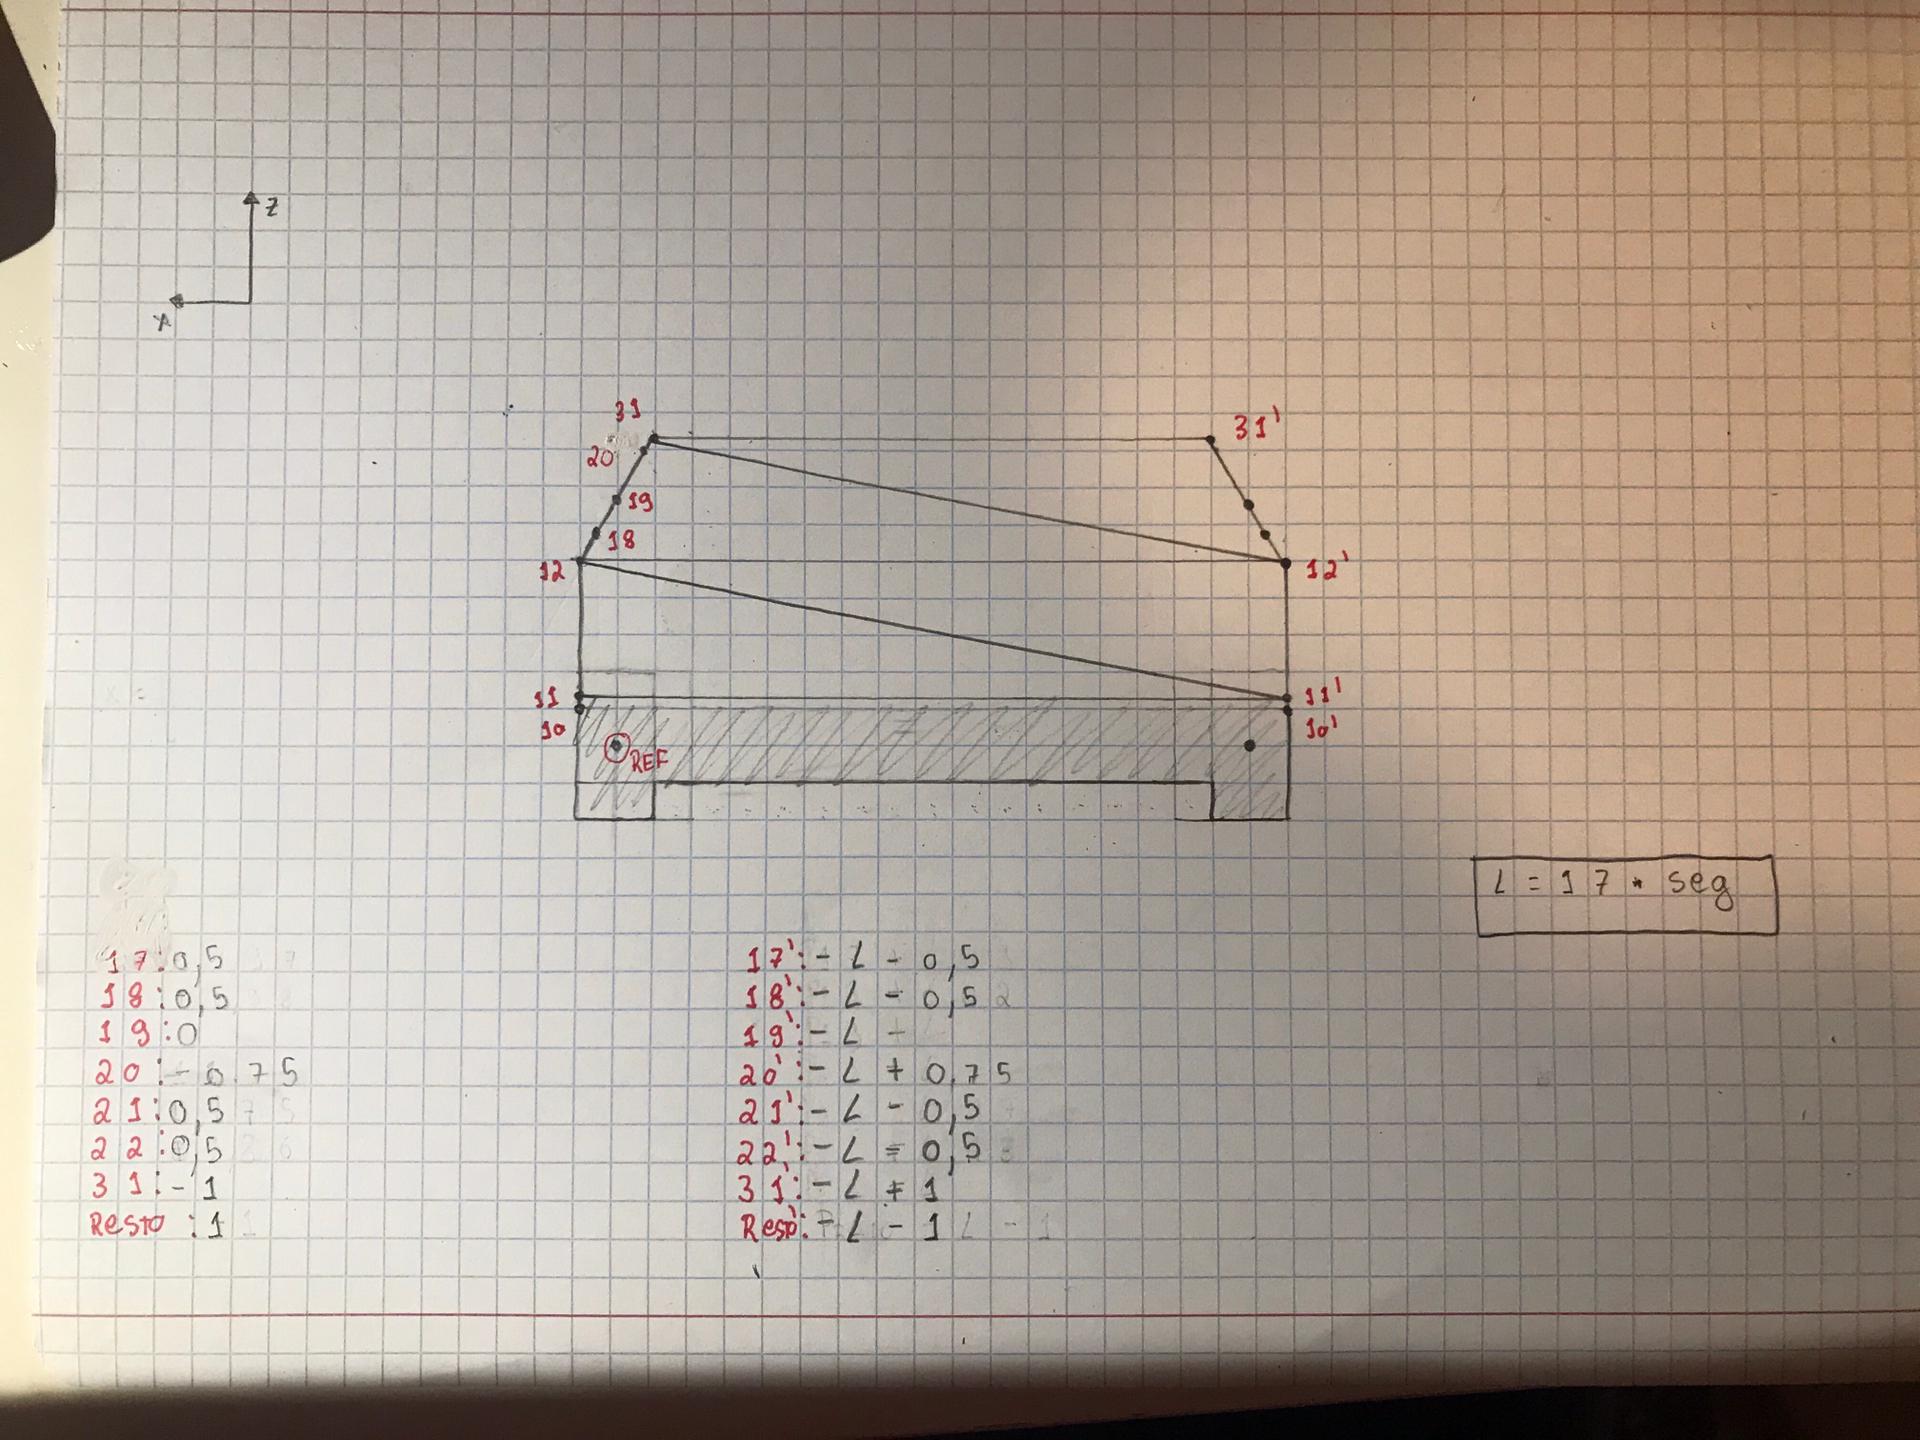 Z
X
31
31'
20
19
18
12
12'
11
11'
10
10'
REF
L = 17 * seg
17: 0,5
18: 0,5
19: 0
20: - 0.75
21: 0,5
22: 0,5
31: - 1
Resto : 1
17': - L - 0,5
18': - L - 0,5
19': - L
20': - L + 0.75
21': - L - 0,5
22': - L = 0,5
31': - L + 1
- L - 1